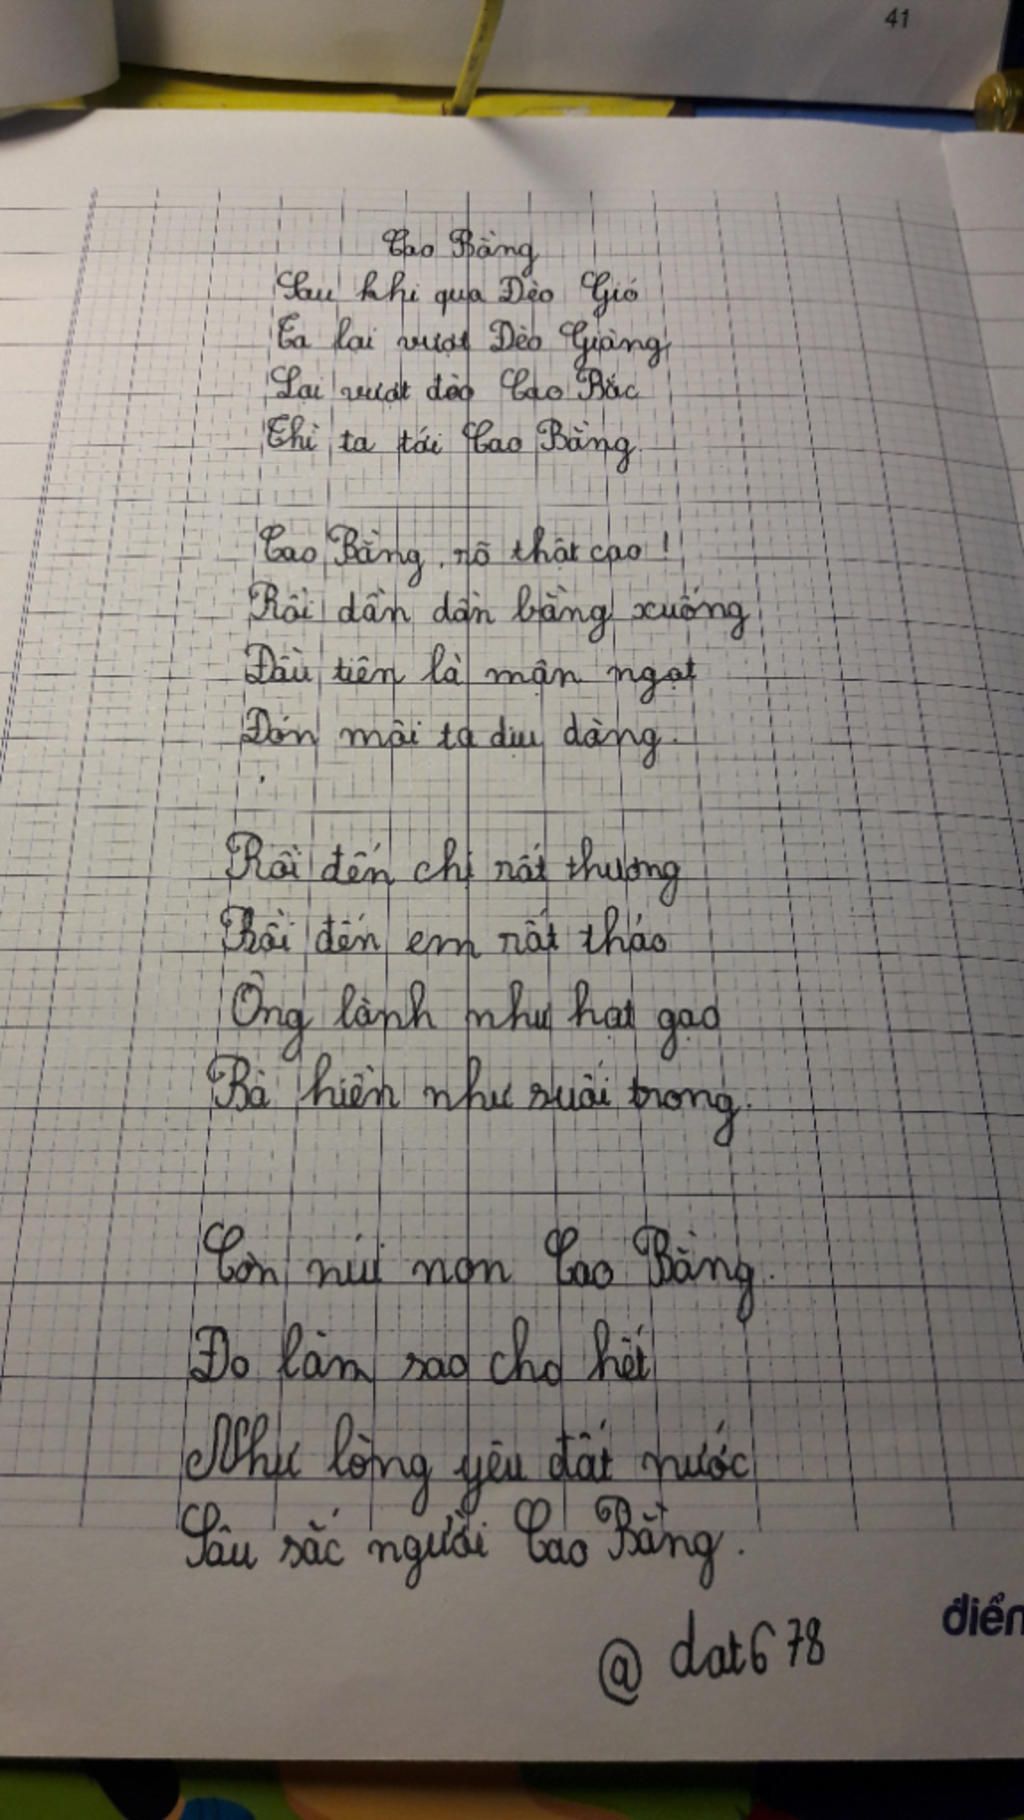 41
Cao Bằng
Sau khi qua Đèo Gió
Ta lại vượt Đèo Giàng
Lại vượt đèo Cao Bắc
Thì ta tới Cao Bằng
Cao Bằng, rõ thật cao !
Rồi dần dần bằng xuống
Đầu tiên là mận ngọt
Đón môi ta dịu dàng.
Rồi đến chị rất thương
Rồi đến em rất thảo
Ông lành như hạt gạo
Bà hiền như suối trong.
Còn núi non Cao Bằng.
Đo làm sao cho hết
Như lòng yêu đất nước
Sâu sắc người Cao Bằng.
@ dat678
điển